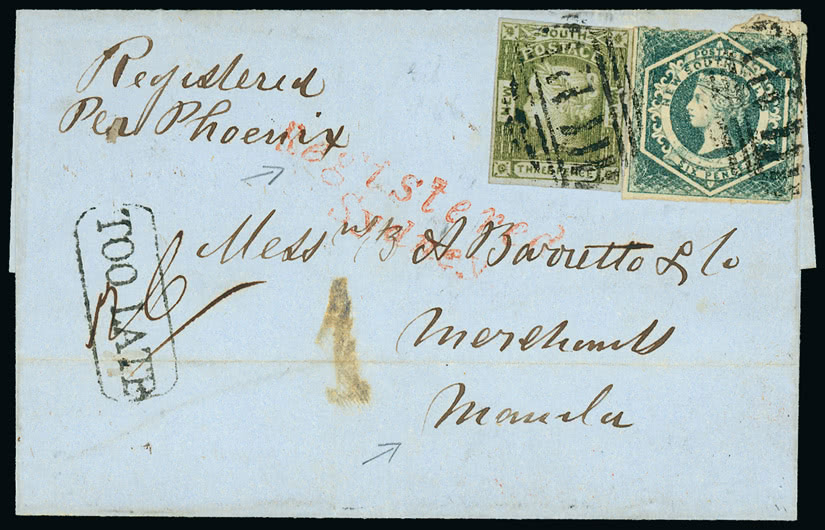 Registered
Per Phoenix
SOUTH
POSTAGE
NEW
THREE PENCE
POSTAGE
SOUTH
SIX PENCE
Registered
Sydney
TOO LATE
Messrs B A Barretto & Co
1
Merchants
Manila